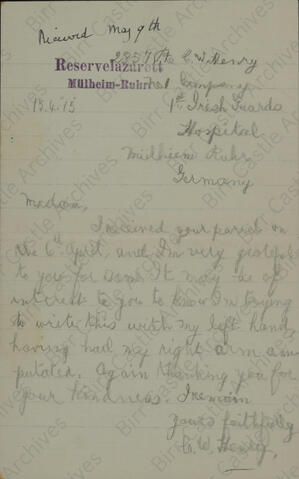 Received May 9th
2357 Pte C. W. Henry
Reservelazarett
Mülheim-Ruhr
No 1 Company
13.4.15
1st Irish Guards
Hospital
Mülheim Ruhr
Germany
Madam,
I received your parcel on
the 6th April, and I'm very grateful
to you for same. It may be of
interest to you to know I'm trying
to write this with my left hand,
having had my right arm am-
putated. Again thanking you for
your kindness. I remain
Yours faithfully
C. W. Henry
Birr Castle Archives